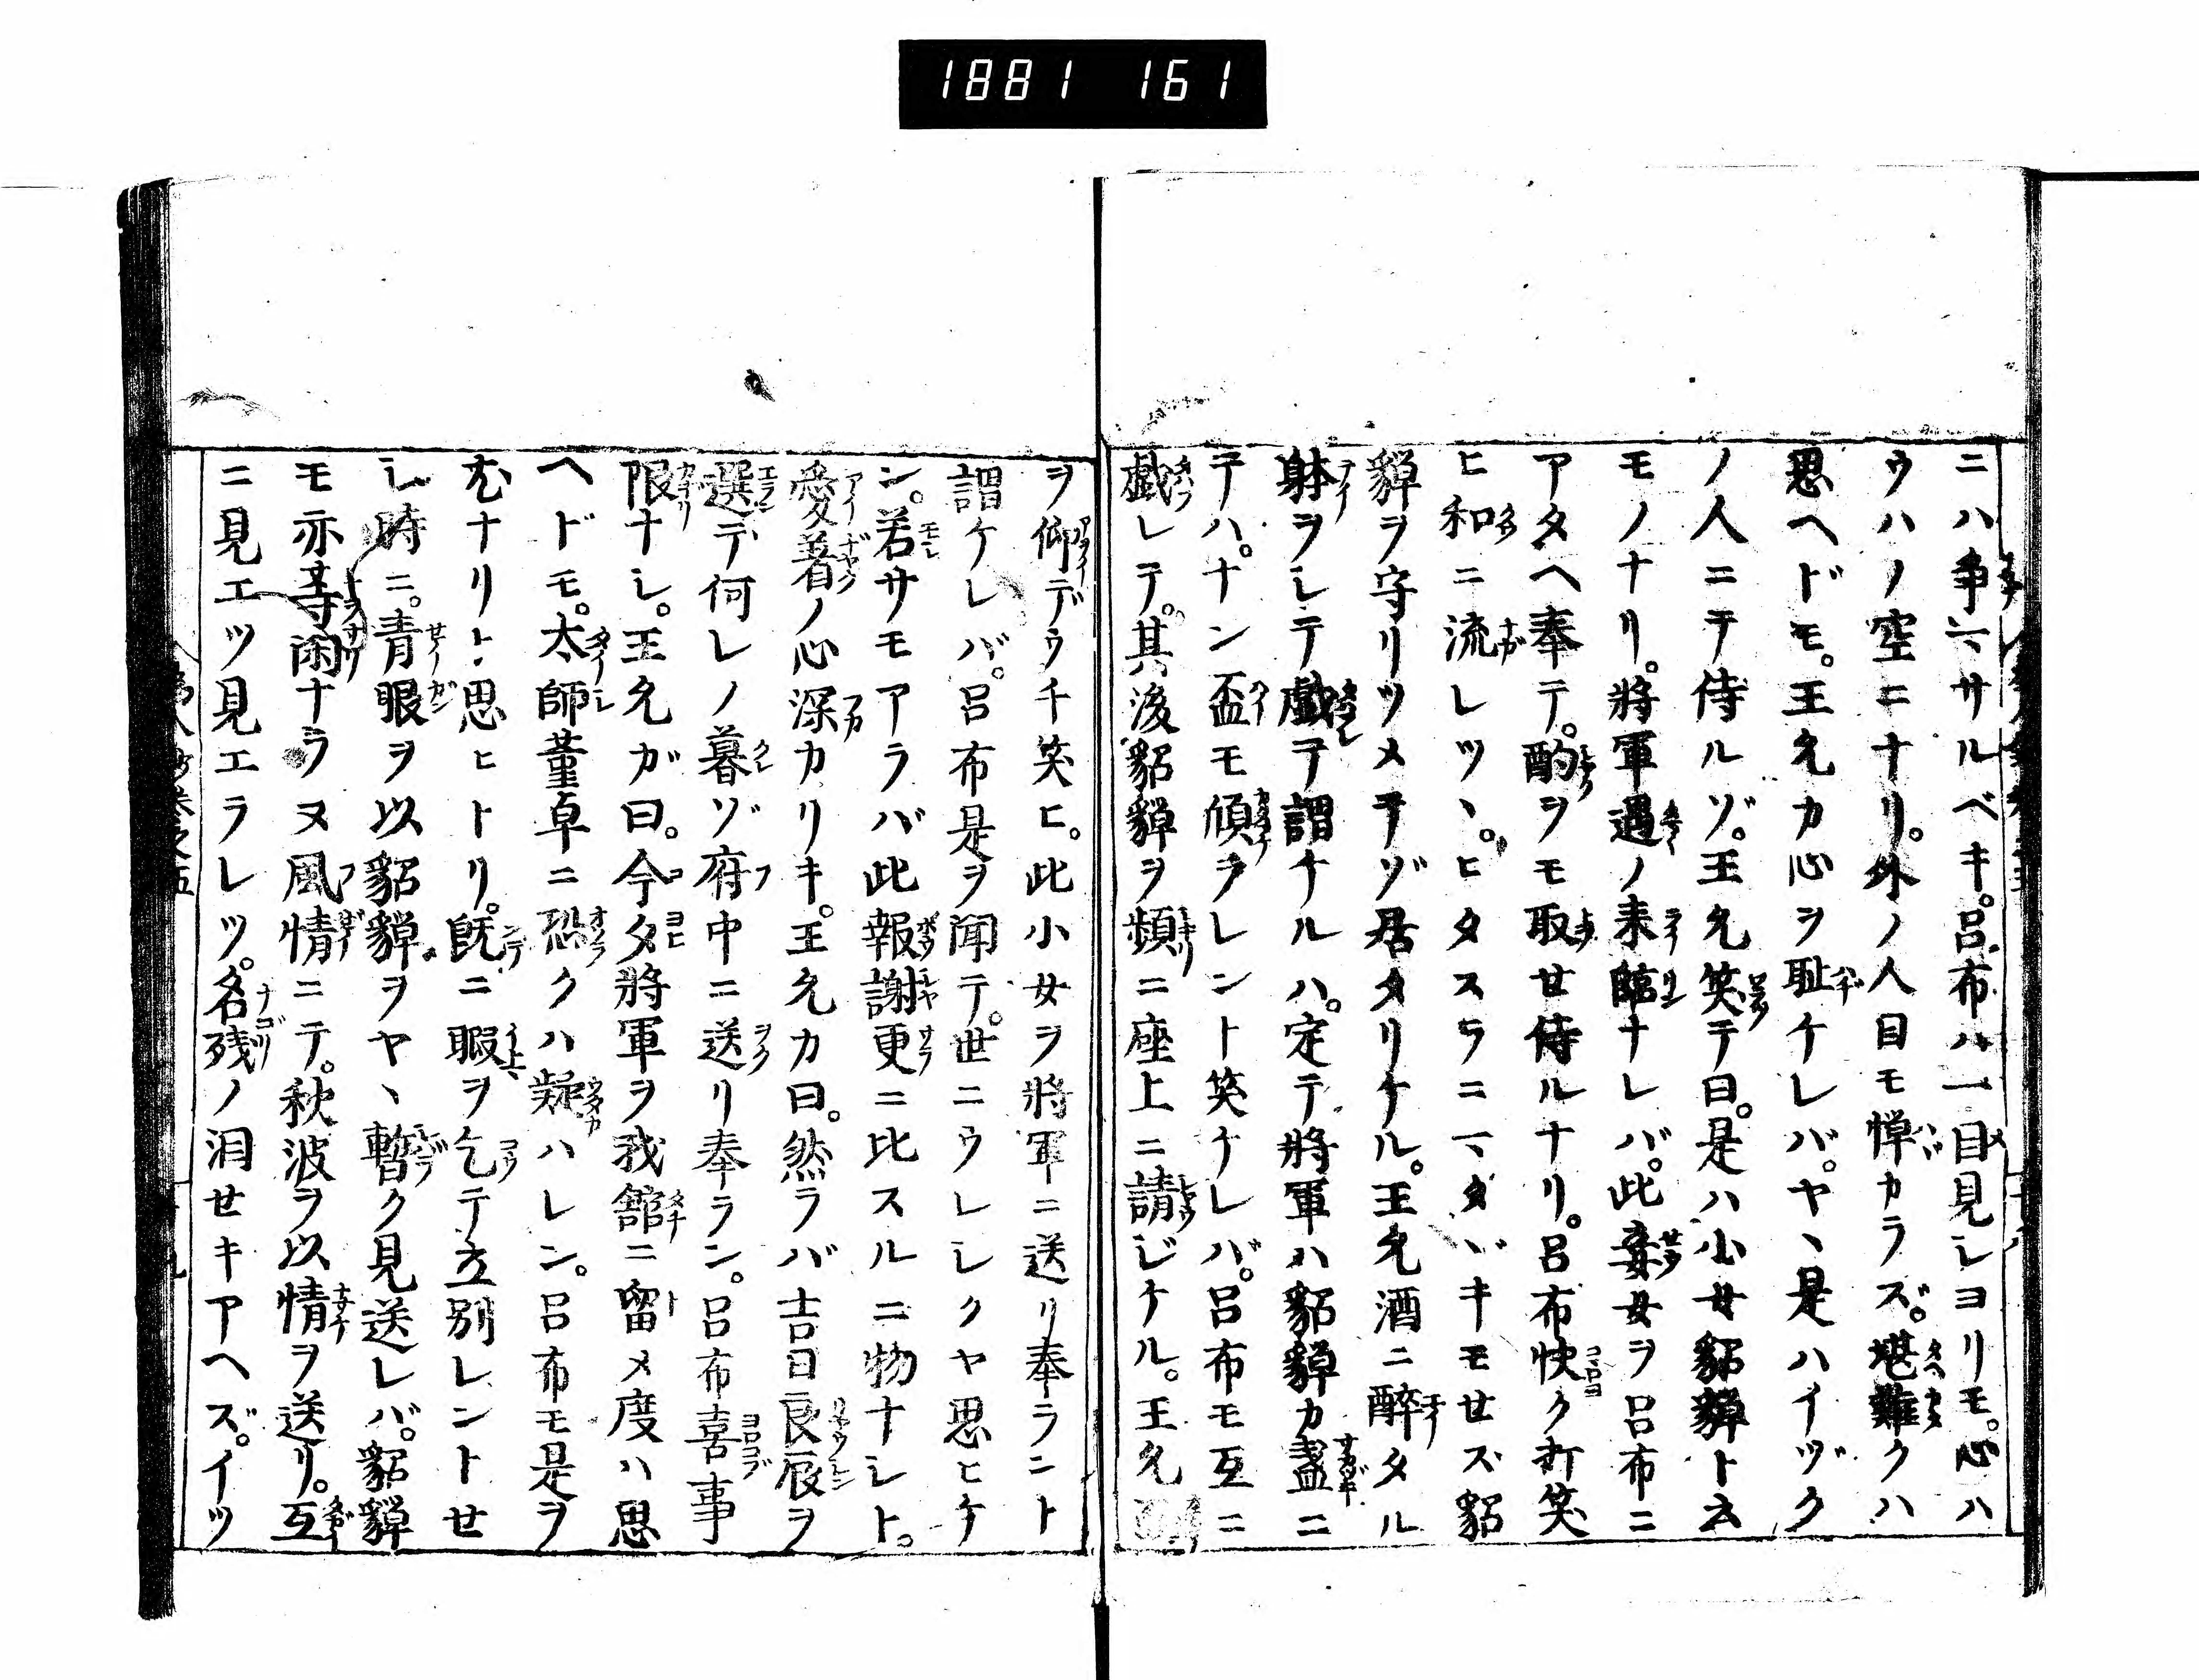 1881 161
ニハ爭カサルベキ。呂布ハ一目見シヨリモ。心ハ
ウハノ空ニナリ。外ノ人目モ憚カラズ。堪難クハ
思ヘドモ。王允カ心ヲ耻ケレバ。ヤヽ是ハイヅク
ノ人ニテ侍ルゾ。王允笑テ曰。是ハ小女貂蟬ト云
モノナリ。將軍過ノ来臨ナレバ。此妾女ヲ呂布ニ
アタヘ奉テ。酌ヲモ取せ侍ルナリ。呂布快ク打笑
ヒ和ニ流レツヽ。ヒタスラニマダヽキモせズ貂
蟬ヲ守リツメテゾ居タリケル。王允酒ニ醉タル
躰ヲシテ戲テ謂ケルハ。定テ將軍ハ貂蟬カ盞ニ
テハ。ナン盃モ傾ヲレント笑ケレバ。呂布モ互ニ
戲レテ。其後貂蟬ヲ頻ニ座上ニ請ジケル。王允
ヲ仰デウチ笑ヒ。此小女ヲ將軍ニ送リ奉ラント
謂ケレバ。呂布是ヲ聞テ。世ニウレシクヤ思ヒケ
ン。若サモアラバ此報謝更ニ比スルニ物ナシト。
愛著ノ心深カリキ。王允カ曰。然ラバ吉日良辰ヲ
選テ何レノ暮ゾ府中ニ送リ奉ラン。呂布喜事
限ナシ。王允ガ曰。今夕將軍ヲ我舘ニ留メ度ハ思
ヘドモ。太師董卓ニ恐クハ疑ハレン。呂布モ是ヲ
尤ナリト思ヒトリ。既ニ暇ヲ乞テ立別レントせ
シ時ニ。青眼ヲ以貂蟬ヲヤヽ暫ク見送レバ。貂蟬
モ亦等閑ナラヌ風情ニテ。秋波ヲ以情ヲ送リ。互
ニ見エツ見エラレツ。名残ノ泪せキアヘズ。イツ